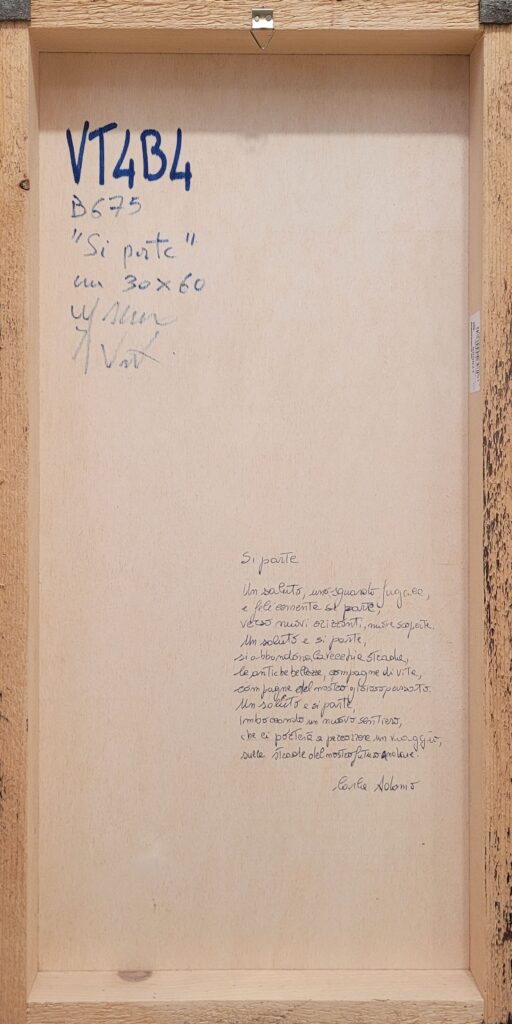 VT4B4
B675
"Si parte"
cm 30x60
Si parte
Un saluto, uno sguardo fugace,
e felicemente si parte,
verso nuovi orizzonti, nuove scoperte.
Un saluto e si parte,
si abbandona la vecchia strada,
le antiche bellezze, compagne di vita,
compagne del nostro glorioso passato.
Un saluto e si parte,
imboccando un nuovo sentiero,
che ci porterà a percorrere un viaggio,
sulle strade del nostro futuro
Carla Adamo